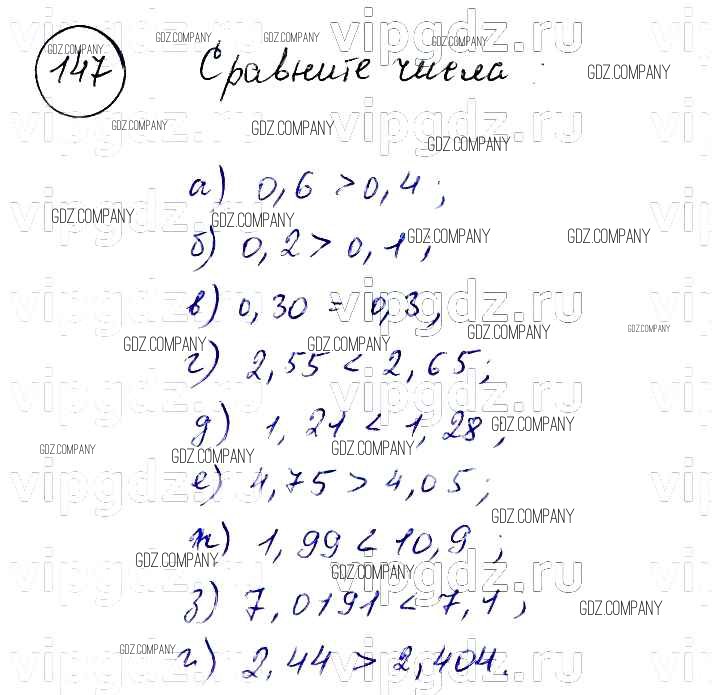 147 Сравните числа
а) 0,6 > 0,4;
б) 0,2 > 0,1;
в) 0,30 = 0,3;
г) 2,55 < 2,65;
д) 1,21 < 1,28;
е) 4,75 > 4,05;
ж) 1,99 < 10,9;
з) 7,0191 < 7,1;
и) 2,44 > 2,404.
vipgdz.ru
GDZ.COMPANY